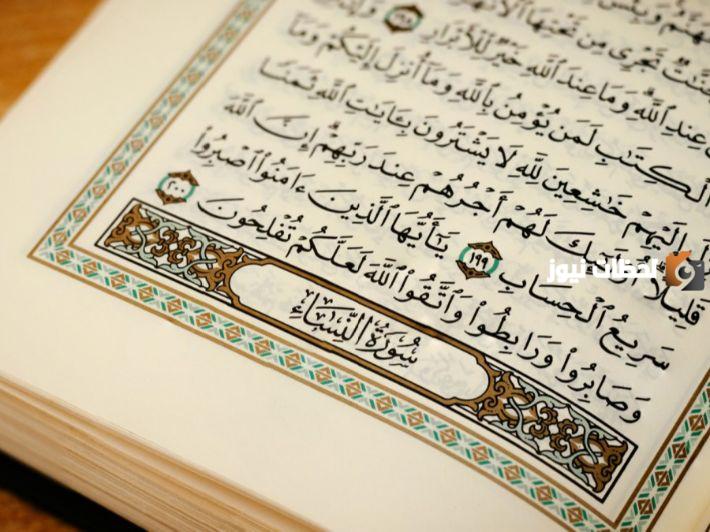 وَبِئْسَ
تَجْرِى مِن تَحْتِهَا ٱلْأَنْهَٰرُ
عِندِ ٱللَّهِ وَمَا عِندَ ٱللَّهِ خَيْرٌ لِّلْأَبْرَارِ ١٩٨ وَإِنَّ
ٱلْكِتَٰبِ لَمَن يُؤْمِنُ بِٱللَّهِ وَمَآ أُنزِلَ إِلَيْكُمْ وَمَآ
إِلَيْهِمْ خَٰشِعِينَ لِلَّهِ لَا يَشْتَرُونَ بِـَٔايَٰتِ ٱللَّهِ ثَمَنًا
قَلِيلًا أُو۟لَٰٓئِكَ لَهُمْ أَجْرُهُمْ عِندَ رَبِّهِمْ إِنَّ ٱللَّهَ
سَرِيعُ ٱلْحِسَابِ ١٩٩ يَٰٓأَيُّهَا ٱلَّذِينَ ءَامَنُوا۟ ٱصْبِرُوا۟
وَصَابِرُوا۟ وَرَابِطُوا۟ وَٱتَّقُوا۟ ٱللَّهَ لَعَلَّكُمْ تُفْلِحُونَ ٢٠٠
سُورَةُ ٱلنِّسَاءِ
لحظات نيوز